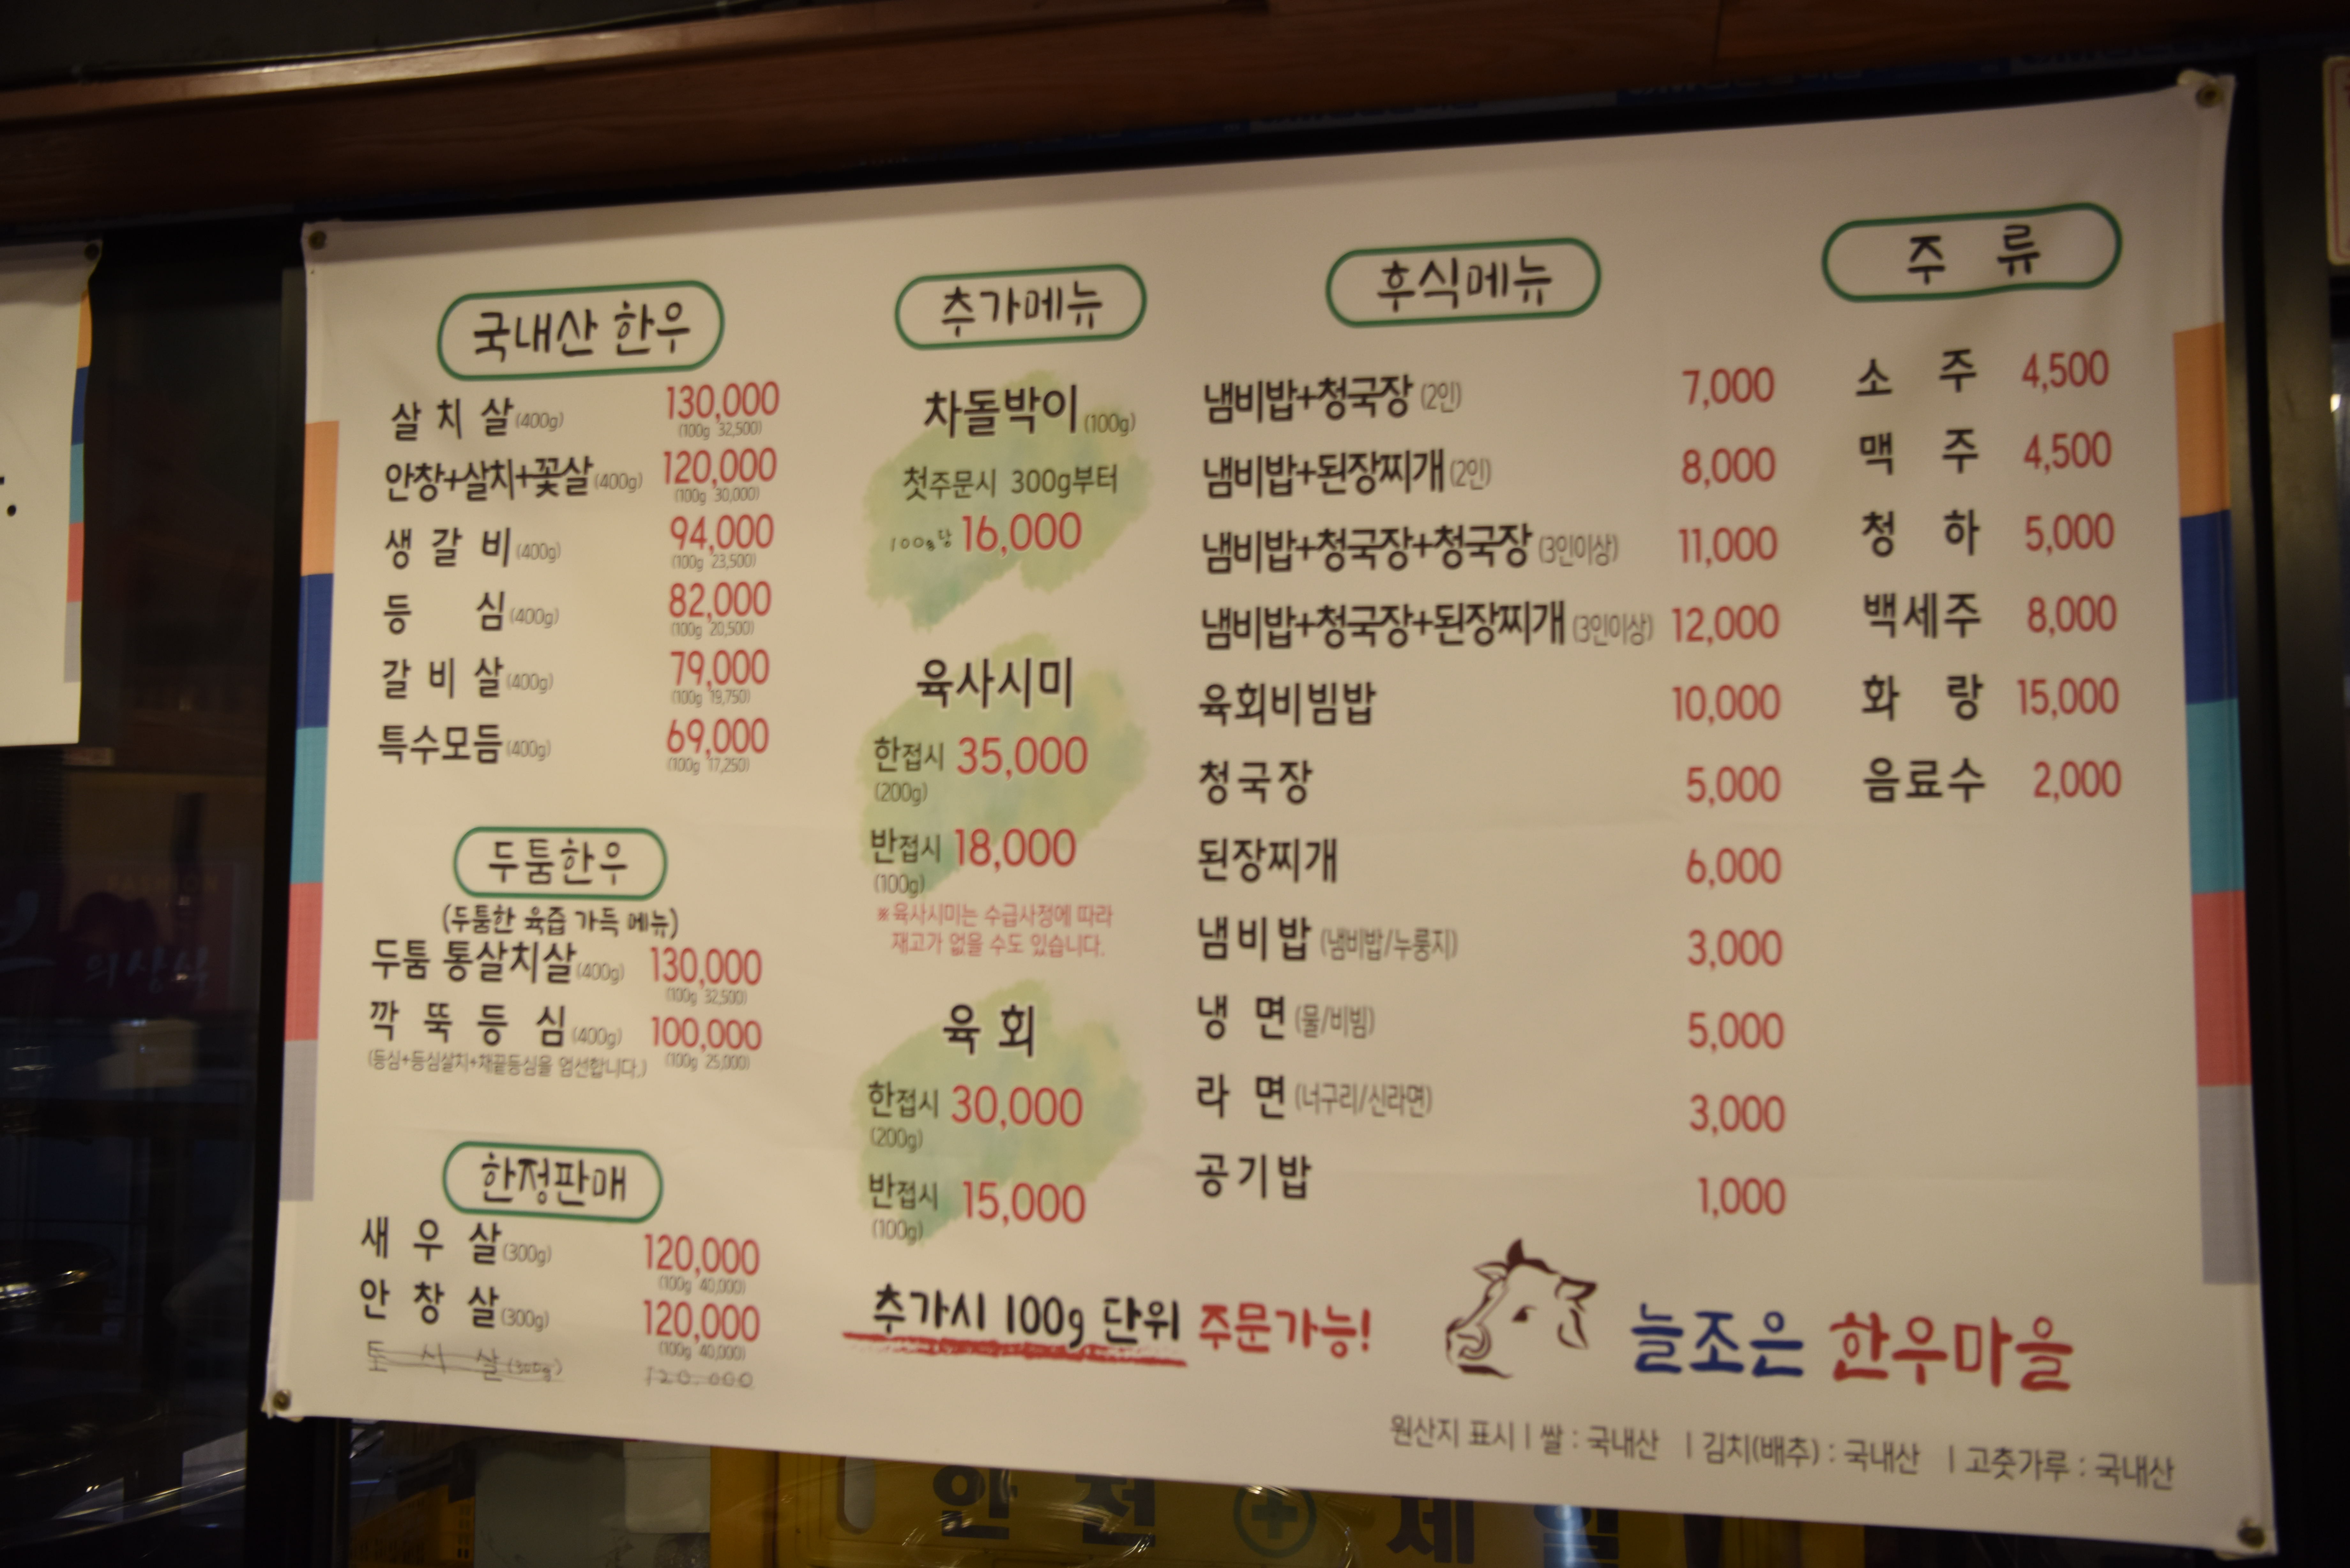 국내산 한우
살치살(400g) 130,000
(100g 32,500)
안창+살치+꽃살(400g) 120,000
(100g 30,000)
생갈비(400g) 94,000
(100g 23,500)
등심(400g) 82,000
(100g 20,500)
갈비살(400g) 79,000
(100g 19,750)
특수모듬(400g) 69,000
(100g 17,250)
두툼한우
(두툼한 육즙 가득 메뉴)
두툼 통살치살(400g) 130,000
(100g 32,500)
깍뚝등심(400g) 100,000
(등심+등심살치+채끝등심을 엄선합니다.) (100g 25,000)
한정판매
새우살(300g) 120,000
(100g 40,000)
안창살(300g) 120,000
(100g 40,000)
토시살(300g) 120.000
추가메뉴
차돌박이(100g)
첫주문시 300g부터
100g당 16,000
육사시미
한접시 35,000
(200g)
반접시 18,000
(100g)
※육사시미는 수급사정에 따라
재고가 없을 수도 있습니다.
육회
한접시 30,000
(200g)
반접시 15,000
(100g)
추가시 100g 단위 주문가능!
후식메뉴
냄비밥+청국장 (2인) 7,000
냄비밥+된장찌개(2인) 8,000
냄비밥+청국장+청국장 (3인이상) 11,000
냄비밥+청국장+된장찌개 (3인이상) 12,000
육회비빔밥 10,000
청국장 5,000
된장찌개 6,000
냄비밥 (냄비밥/누룽지) 3,000
냉면 (물/비빔) 5,000
라면 (너구리/신라면) 3,000
공기밥 1,000
주류
소주 4,500
맥주 4,500
청하 5,000
백세주 8,000
화랑 15,000
음료수 2,000
늘조은 한우마을
원산지 표시 | 쌀 : 국내산 | 김치(배추) : 국내산 | 고춧가루 : 국내산
안전
제일